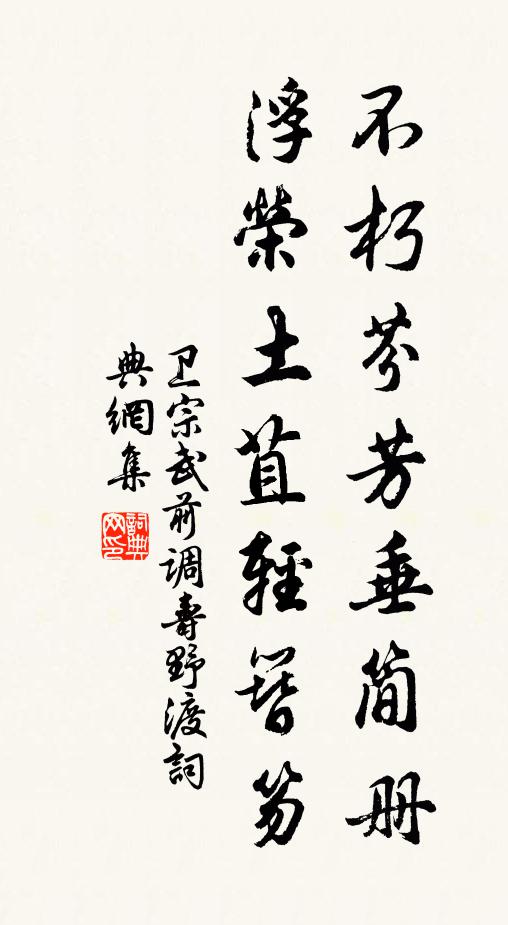 不朽芬芳垂简册
浮榮土苴輕簪笏
卫宗武前调壽野渡詞
典網集
詞典
网印